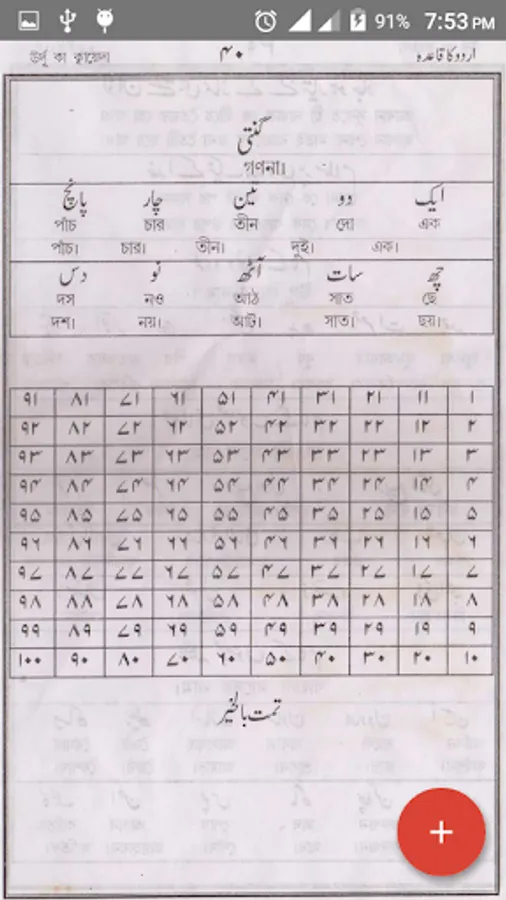 91% 7:53 PM
উর্দু কা ক্বায়েদা ۴۰ اردو کا قاعدہ
گنتی
গণনা।
ایک دو تین چار پانچ
পাঁচ চার তীন দো এক
পাঁচ। চার। তীন। দুই। এক।
چھ سات آٹھ نو دس
দস নও আঠ সাত ছে
দশ। নয়। আট। সাত। ছয়।
۱ ۱۱ ۲۱ ۳۱ ۴۱ ۵۱ ۶۱ ۷۱ ۸۱ ۹۱
۲ ۱۲ ۲۲ ۳۲ ۴۲ ۵۲ ۶۲ ۷۲ ۸۲ ۹۲
۳ ۱۳ ۲۳ ۳۳ ۴۳ ۵۳ ۶۳ ۷۳ ۸۳ ۹۳
۴ ۱۴ ۲۴ ۳۴ ۴۴ ۵۴ ۶۴ ۷۴ ۸۴ ۹۴
۵ ۱۵ ۲۵ ۳۵ ۴۵ ۵۵ ۶۵ ۷۵ ۸۵ ۹۵
۶ ۱۶ ۲۶ ۳۶ ۴۶ ۵۶ ۶۶ ۷۶ ۸۶ ۹۶
۷ ۱۷ ۲۷ ۳۷ ۴۷ ۵۷ ۶۷ ۷۷ ۸۷ ۹۷
۸ ۱۸ ۲۸ ۳۸ ۴۸ ۵۸ ۶۸ ۷۸ ۸۸ ۹۸
۹ ۱۹ ۲۹ ۳۹ ۴۹ ۵۹ ۶۹ ۷۹ ۸۹ ۹۹
۱۰ ۲۰ ۳۰ ۴۰ ۵۰ ۶۰ ۷۰ ۸۰ ۹۰ ۱۰۰
تمت بالخیر